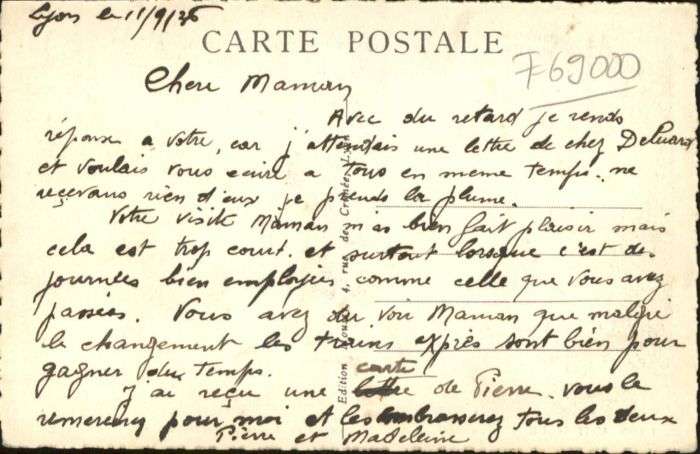 Lyon le 11/9/26
CARTE POSTALE
F69000
Chere Maman
Avec du retard je rends
réponse a votre, car j'attendais une lettre de chez
et voulais vous ecrire a tous en meme temps. ne
reçevans rien d'eux je prends la plume.
Votre visite Maman m'as bien fait plaisir mais
cela est trop court. et surtout lorsque c'est des
journées bien employées comme celle que vous avez
passées. Vous avez du voir Maman que malgré
le changement les trains exprès sont bien pour
gagner du temps.
J'ai reçu une carte de Pierre. vous le
remercierez pour moi et les embrasserez tous les deux
Pierre et Madeleine
Edition rue des